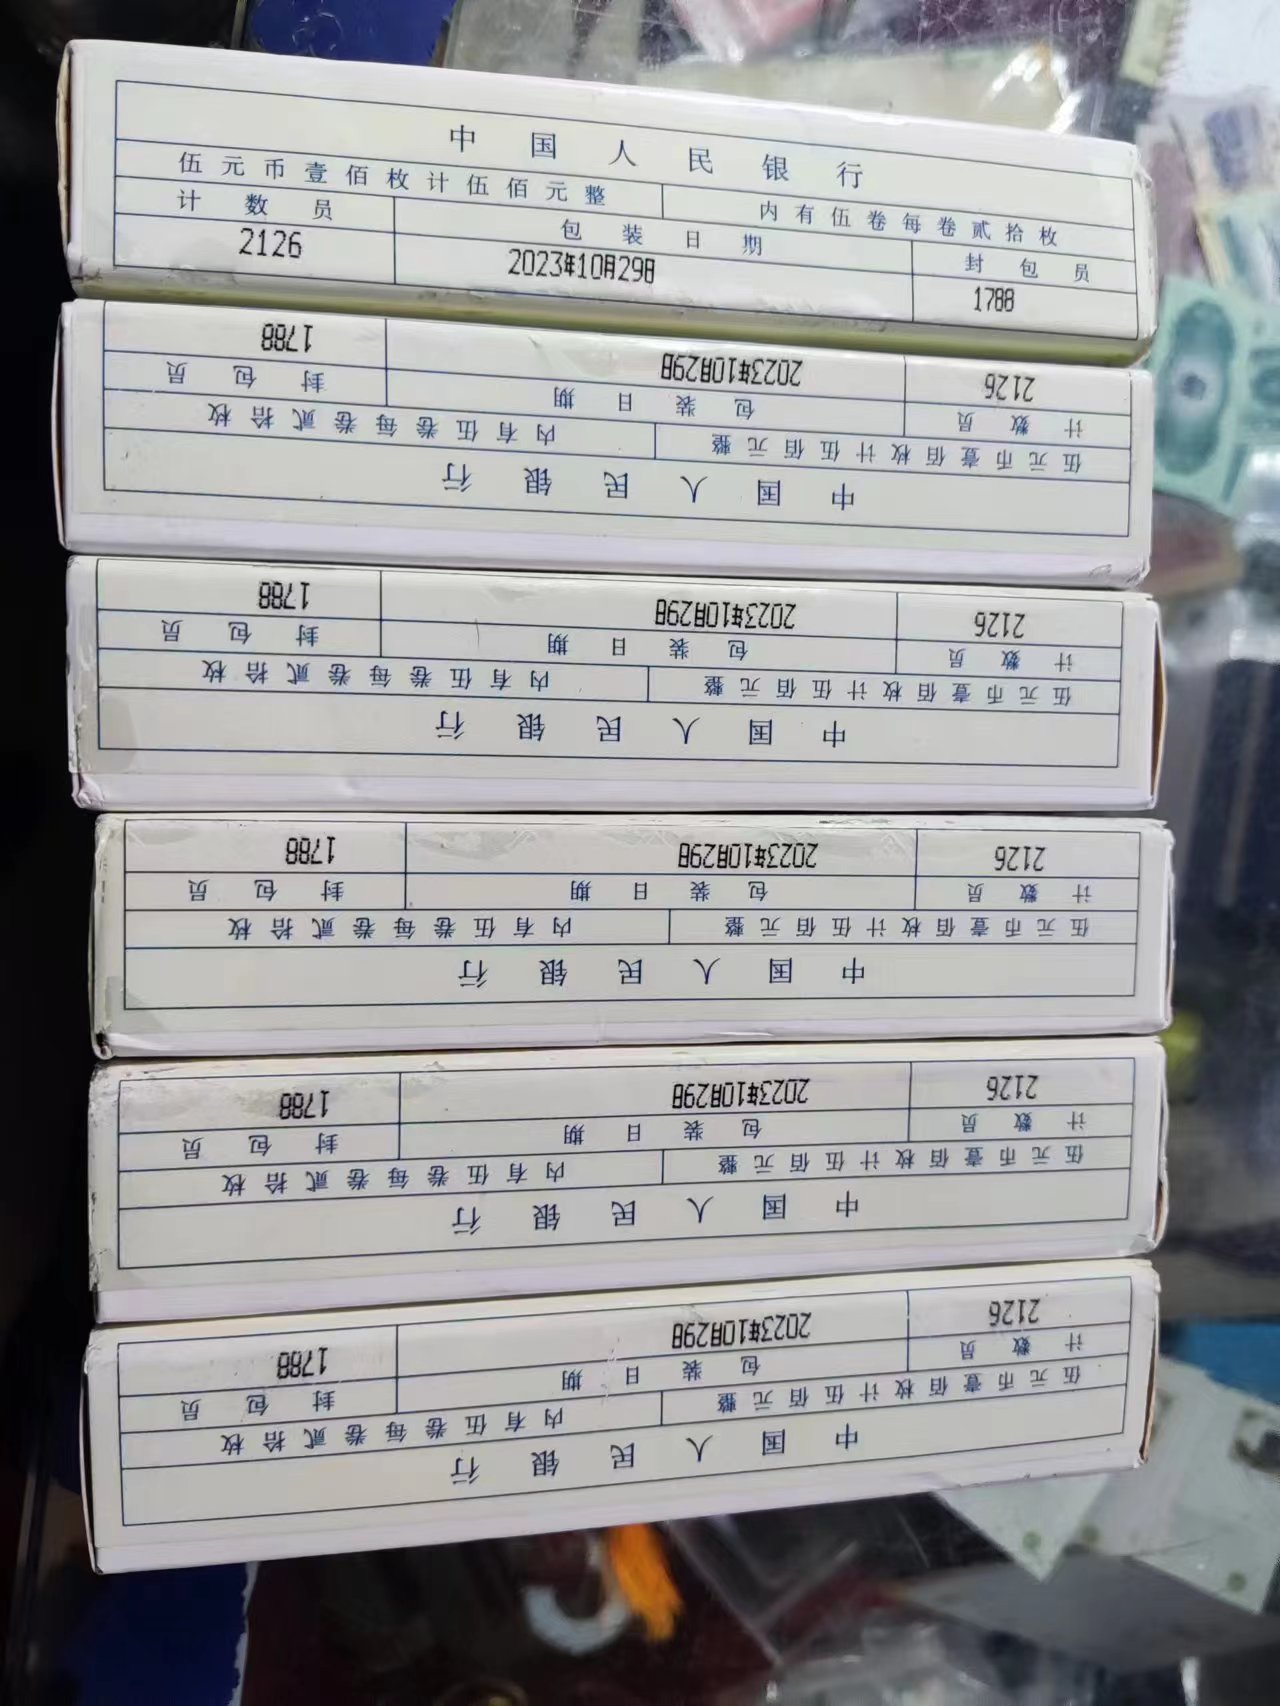 中国人民银行
伍元币壹佰枚计伍佰元整 内有伍卷每卷贰拾枚
计数员 包装日期 封包员
2126 2023年10月29日 1788
中国人民银行
伍元币壹佰枚计伍佰元整 内有伍卷每卷贰拾枚
计数员 包装日期 封包员
2126 2023年10月29日 1788
中国人民银行
伍元币壹佰枚计伍佰元整 内有伍卷每卷贰拾枚
计数员 包装日期 封包员
2126 2023年10月29日 1788
中国人民银行
伍元币壹佰枚计伍佰元整 内有伍卷每卷贰拾枚
计数员 包装日期 封包员
2126 2023年10月29日 1788
中国人民银行
伍元币壹佰枚计伍佰元整 内有伍卷每卷贰拾枚
计数员 包装日期 封包员
2126 2023年10月29日 1788
中国人民银行
伍元币壹佰枚计伍佰元整 内有伍卷每卷贰拾枚
计数员 包装日期 封包员
2126 2023年10月29日 1788